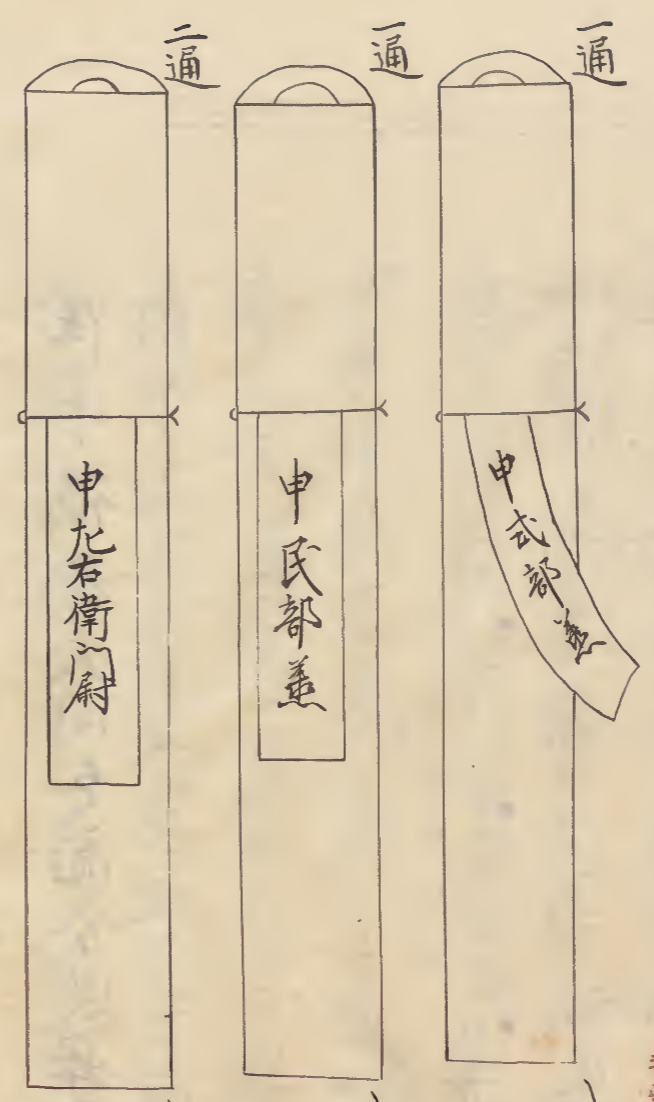 一通
申式部丞
一通
申民部丞
二通
申左右衛門尉